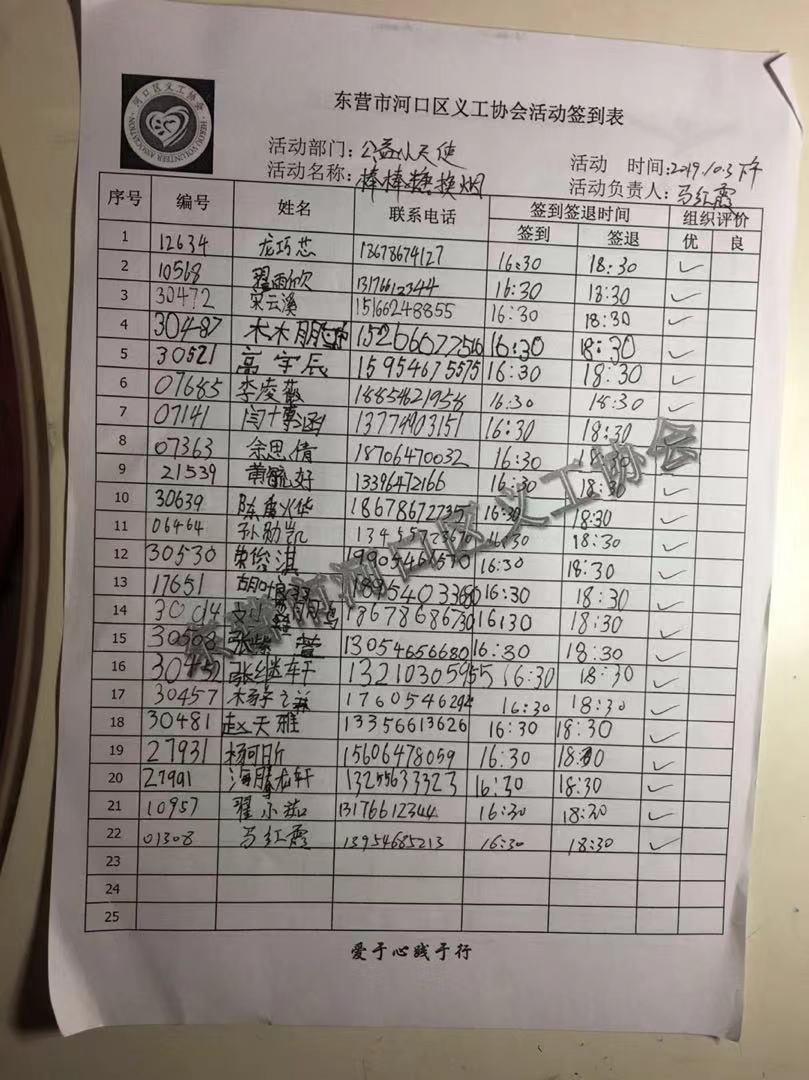 东营市河口区义工协会活动签到表
河口区义工协会
HEKOU VOLUNTEER ASSOCIATION
活动部门：公益小天使
活动 时间：2019.10.3下午
活动名称：棒棒糖换烟
活动负责人：马红霞
序号 编号 姓名 联系电话 签到签退时间 组织评价
签到 签退 优 良
1 12634 龙巧芯 13678674127 16:30 18:30 ✓
2 10568 翟雨欣 13176612344 16:30 18:30 ✓
3 30472 宋云溪 15166248855 16:30 18:30 ✓
4 30487 16:30 18:30 ✓
5 30521 高宇辰 15954675575 16:30 18:30 ✓
6 07685 李凌薇 18854621958 16:30 18:30 ✓
7 07141 13774903151 16:30 18:30 ✓
8 07363 余思倩 18706470032 16:30 18:30 ✓
9 21539 黄毓好 13396472166 16:30 18:30 ✓
10 30639 16:30 18:30 ✓
11 06464 孙勋凯 16:30 18:30 ✓
12 30530 16:30 18:30 ✓
13 17651 16:30 18:30 ✓
14 16:30 18:30 ✓
15 30508 张紫萱 13054656680 16:30 18:30 ✓
16 张继轩 16:30 18:30 ✓
17 30457 16:30 18:30 ✓
18 30481 赵天雅 13356613626 16:30 18:30 ✓
19 27931 15606478059 16:30 18:30 ✓
20 27991 13255633323 16:30 18:30 ✓
21 10957 翟小茹 13176612344 16:30 18:30 ✓
22 01308 马红霞 13954685213 16:30 18:30 ✓
23
24
25
东营市河口区义工协会
爱于心践于行